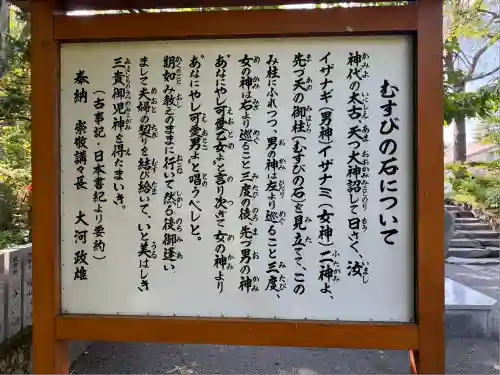 むすびの石について
神代の太古、天つ大神詔して日さく、汝
イザナキ(男神)イザナミ(女神)二神よ、
先づ天の御柱(むすびの石)を見立て、この
み柱にふれつつ、男の神は左より巡ること三度、
女の神は右より巡ること三度の後、先づ男の神
“あなにやし可愛乙女よと言り次ぎて女の神より
“あなにやし可愛男よ”と唱うべしと。
期如み教えのままに行いて然る後御逢い
まして夫婦の契りを結び給いて、いと美はしき
三貴御児神を得たまいき。
(古事記・日本書紀より要約)
奉納 崇敬講々長 大河政雄